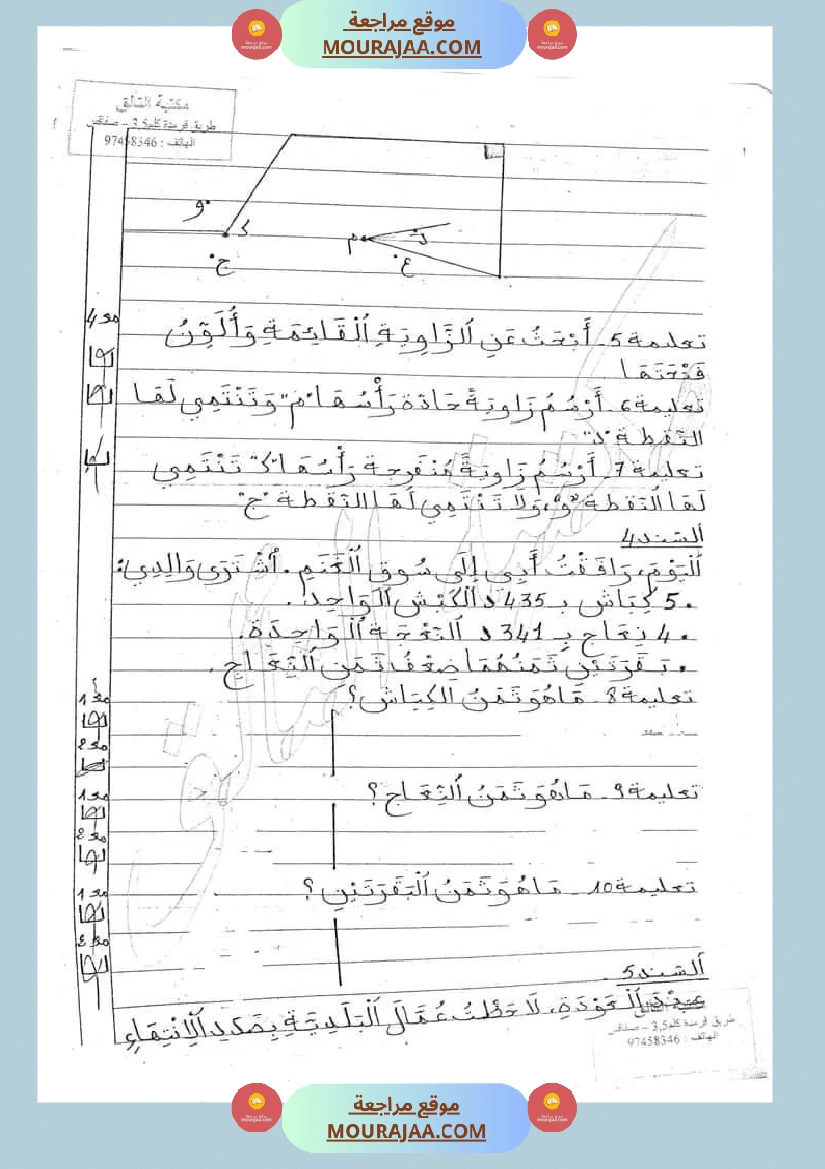 موقع مراجعة
MOURAJAA.COM
مكتبة التألق
طريق قرمدة كلم 3,5 - صفاقس
الهاتف : 97458346
و
ك
م
ج
ع
تعليمة 5 - أَبْحَثُ عَنِ ٱلزَّاوِيَةِ ٱلْقَائِمَةِ وَأُلَوِّنُ
فَتْحَتَهَا
مع 4
تعليمة 6 - أَرْسُمُ زَاوِيَةً حَادَّة رَأْسُهَا "م" وَتَنْتَمِي لَهَا
النّقطة
تعليمة 7 - أَرْسُمُ زَاوِيَةً مُنْفَرِجة رَأْسُهَا "ك" تَنْتَمِي
لَهَا ٱلنّقطة "و" وَلَا تَنْتَمِي لَهَا النّقطة "ج"
ٱلسّند 4
ٱلْيَوْمَ، رَافَقْتُ أَبِي إِلَى سُوقِ ٱلْغَنَمِ. ٱشْتَرَى وَالِدِي:
• 5 كِبَاش بـ 435 د ٱلْكَبْش ٱلْوَاحِد.
• 4 نِعَاج بِـ 341 د ٱلنَّعْجَة ٱلْوَاحِدَة.
• بَقَرَتَيْنِ ثَمَنُهُمَا ضِعْفُ ثَمَنِ ٱلنِّعَاجِ.
تعليمة 8 - مَا هُوَ ثَمَنُ الكِبَاش؟
مع 1
مع 2
تعليمة 9 - مَا هُوَ ثَمَنُ ٱلنِّعَاج؟
مع 1
مع 2
تعليمة 10 - مَا هُوَ ثَمَنُ ٱلْبَقَرَتَيْنِ؟
مع 1
مع 2
ٱلسّند 5
عِنْدَ ٱلْعَوْدَةِ، لَاحَظْتُ عُمَّالَ ٱلْبَلَدِيَّةِ بِصَدَدِ ٱلْاِنْتِهَاءِ
طريق قرمدة كلم 3,5 - صفاقس
الهاتف : 97458346
موقع مراجعة
MOURAJAA.COM